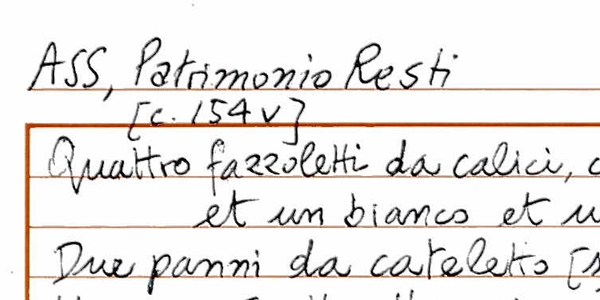 ASS, Patrimonio Resti
[c. 154 v]
Quattro fazzoletti da calici,
et un bianco et
Due panni da cateletto